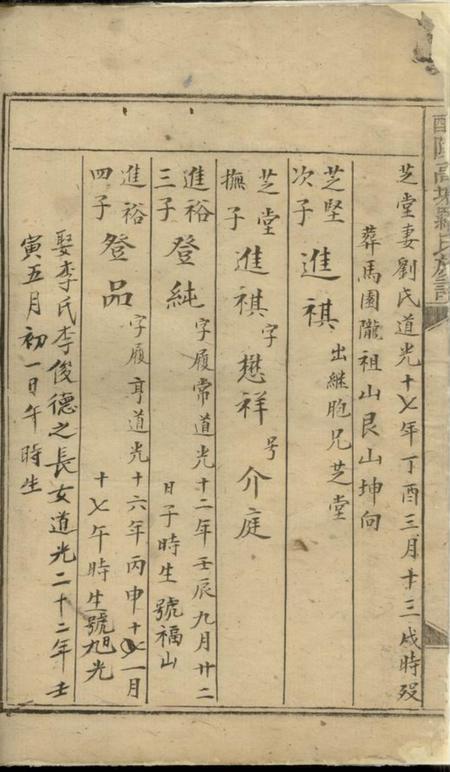 醴陵高塘羅氏族譜
芝堂妻劉氏道光十七年丁酉三月十三戌時歿
葬馬園隴祖山艮山坤向
芝堅次子 進祺 出継胞兄芝堂
芝堂撫子 進祺 字懋祥 号介庭
進裕三子 登純 字履常道光十二年壬辰九月廿二
日子時生 號福山
進裕四子 登品 字履亨道光十六年丙申十一月
十七午時生 號旭光
娶李氏李俊德之長女道光二十二年壬
寅五月初一日午時生